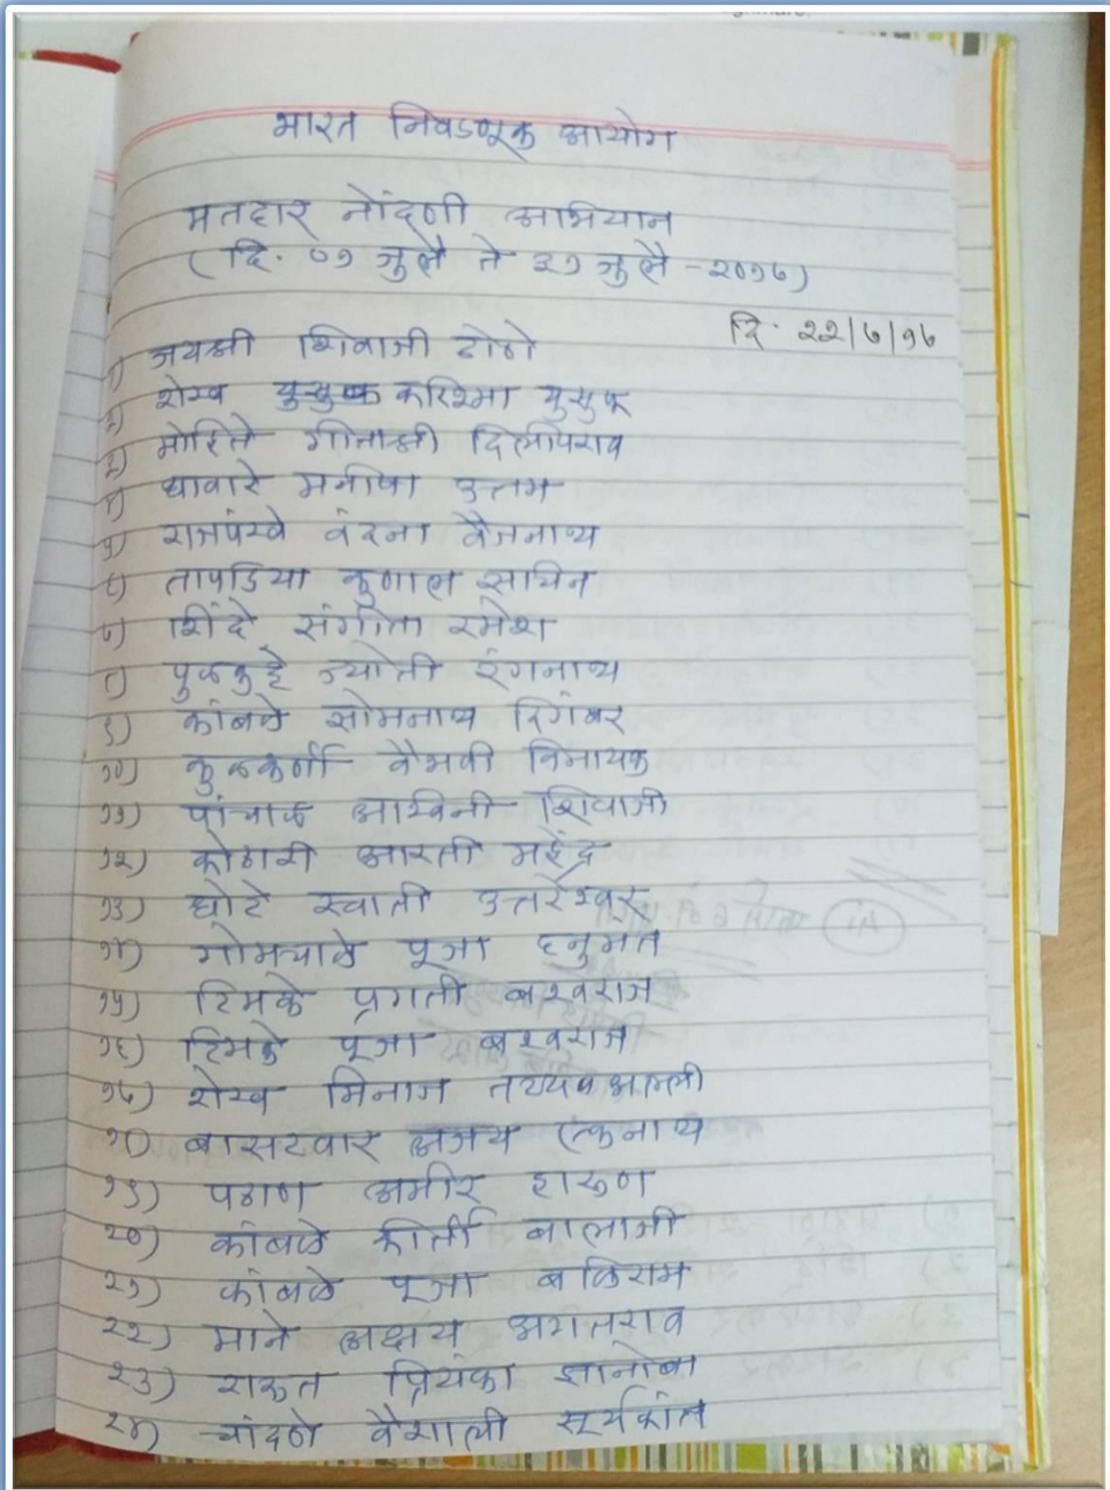 भारत निवडणूक आयोग
मतदार नोंदणी अभियान
(दि. ०१ जुलै ते ३१ जुलै - २०१७)
दि. २२/७/१७
१) जयश्री शिवाजी टोणे
२) शेख करिश्मा युसुफ
३) मोहिते गीताश्री दिलीपराव
४) धावारे मनीषा उत्तम
५) राजपंखे वंदना वैजनाथ
६) तापडिया कुणाल सचिन
७) शिंदे संगीता रमेश
८) पुळकुटे ज्योती रंगनाथ
९) कांबळे सोमनाथ दिगंबर
१०) कुळकर्णी वैभवी विनायक
११) पांचाळ अश्विनी शिवाजी
१२) कोठारी आरती महेंद्र
१३) घोटे स्वाती उत्तरेश्वर
१४) गोमचाळे पूजा हनुमंत
१५) टिमके प्रगती बस्वराज
१६) टिमके पूजा बस्वराज
१७) शेख मिनाज तय्यबअल्ली
१८) बासटवार अजय एकनाथ
१९) पठाण अमीर हारुण
२०) कांबळे कीर्ती बालाजी
२१) कांबळे पूजा बळिराम
२२) माने अक्षय अगतराव
२३) राऊत प्रियंका ज्ञानोबा
२४) चांदणे वैशाली सूर्यकांत